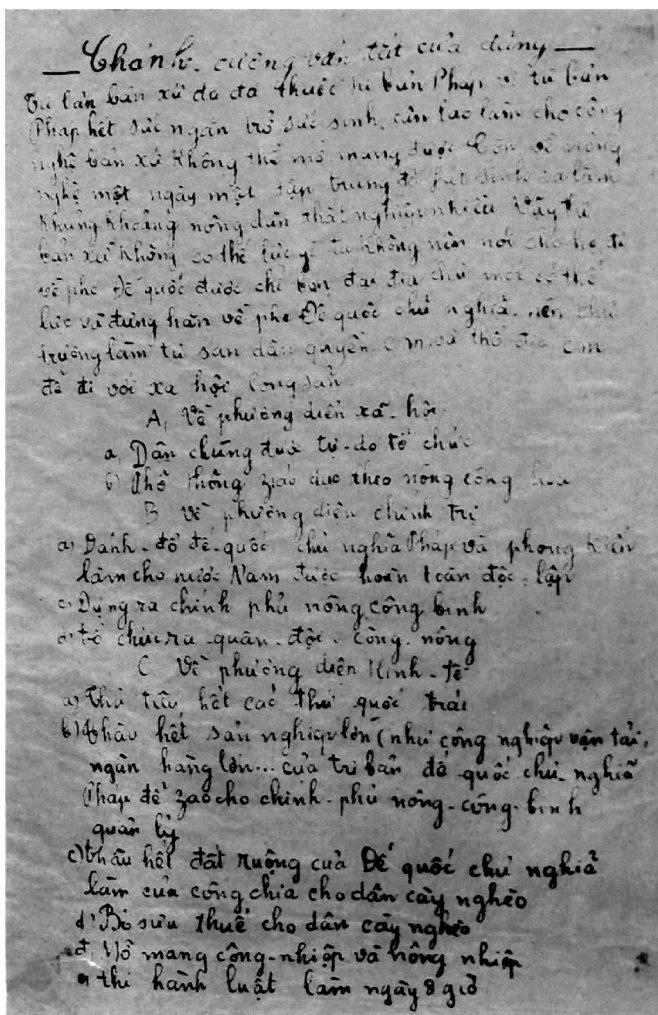 Chánh-cương vắn tắt của đảng
Tư bản bản xứ đã thuộc tư bản Pháp vì tư bản
Pháp hết sức ngăn trở sức sinh sản làm cho công
nghệ bản xứ không thể mở mang được Còn về nông
nghệ một ngày một tập trung đã phát sinh ra lắm
khủng khoảng nông dân thất nghiệp nhiều Vậy tư
bản xứ không có thế lực gì ta không nên nói cho họ đi
về phe Đế quốc được chỉ bọn đại địa chủ mới có thế
lực và đứng hẳn về phe Đế quốc chủ nghĩa nên chủ
trương làm tư sản dân quyền c.m. và thổ địa c.m
để đi với xã hội cộng sản
A, Về phương diện xã-hội
a, Dân chúng được tự-do tổ chức
b) Phổ thông záo dục theo nông công hoá
B Về phương diện chính trị
a) Đánh-đổ đế-quốc chủ nghĩa Pháp và phong kiến
làm cho nước Nam được hoàn toàn độc-lập
c) Dựng ra chính phủ nông công binh
d) tổ chức ra quân-đội công-nông
C Về phương diện Kinh-tế
a) Thủ tiêu hết các thứ quốc trái
b) thâu hết sản nghiệp lớn (như công nghiệp vận tải,
ngân hàng lớn... của tư bản đế quốc chủ-nghĩa
Pháp để zao cho chính-phủ nông-công-binh
quản lý
c) thâu hết đất ruộng của Đế quốc chủ nghĩa
làm của công chia cho dân cày nghèo
d, Bỏ sưu thuế cho dân cày nghèo
đ, Mở mang công-nhiệp và nông nhiệp
e, thi hành luật làm ngày 8 giờ